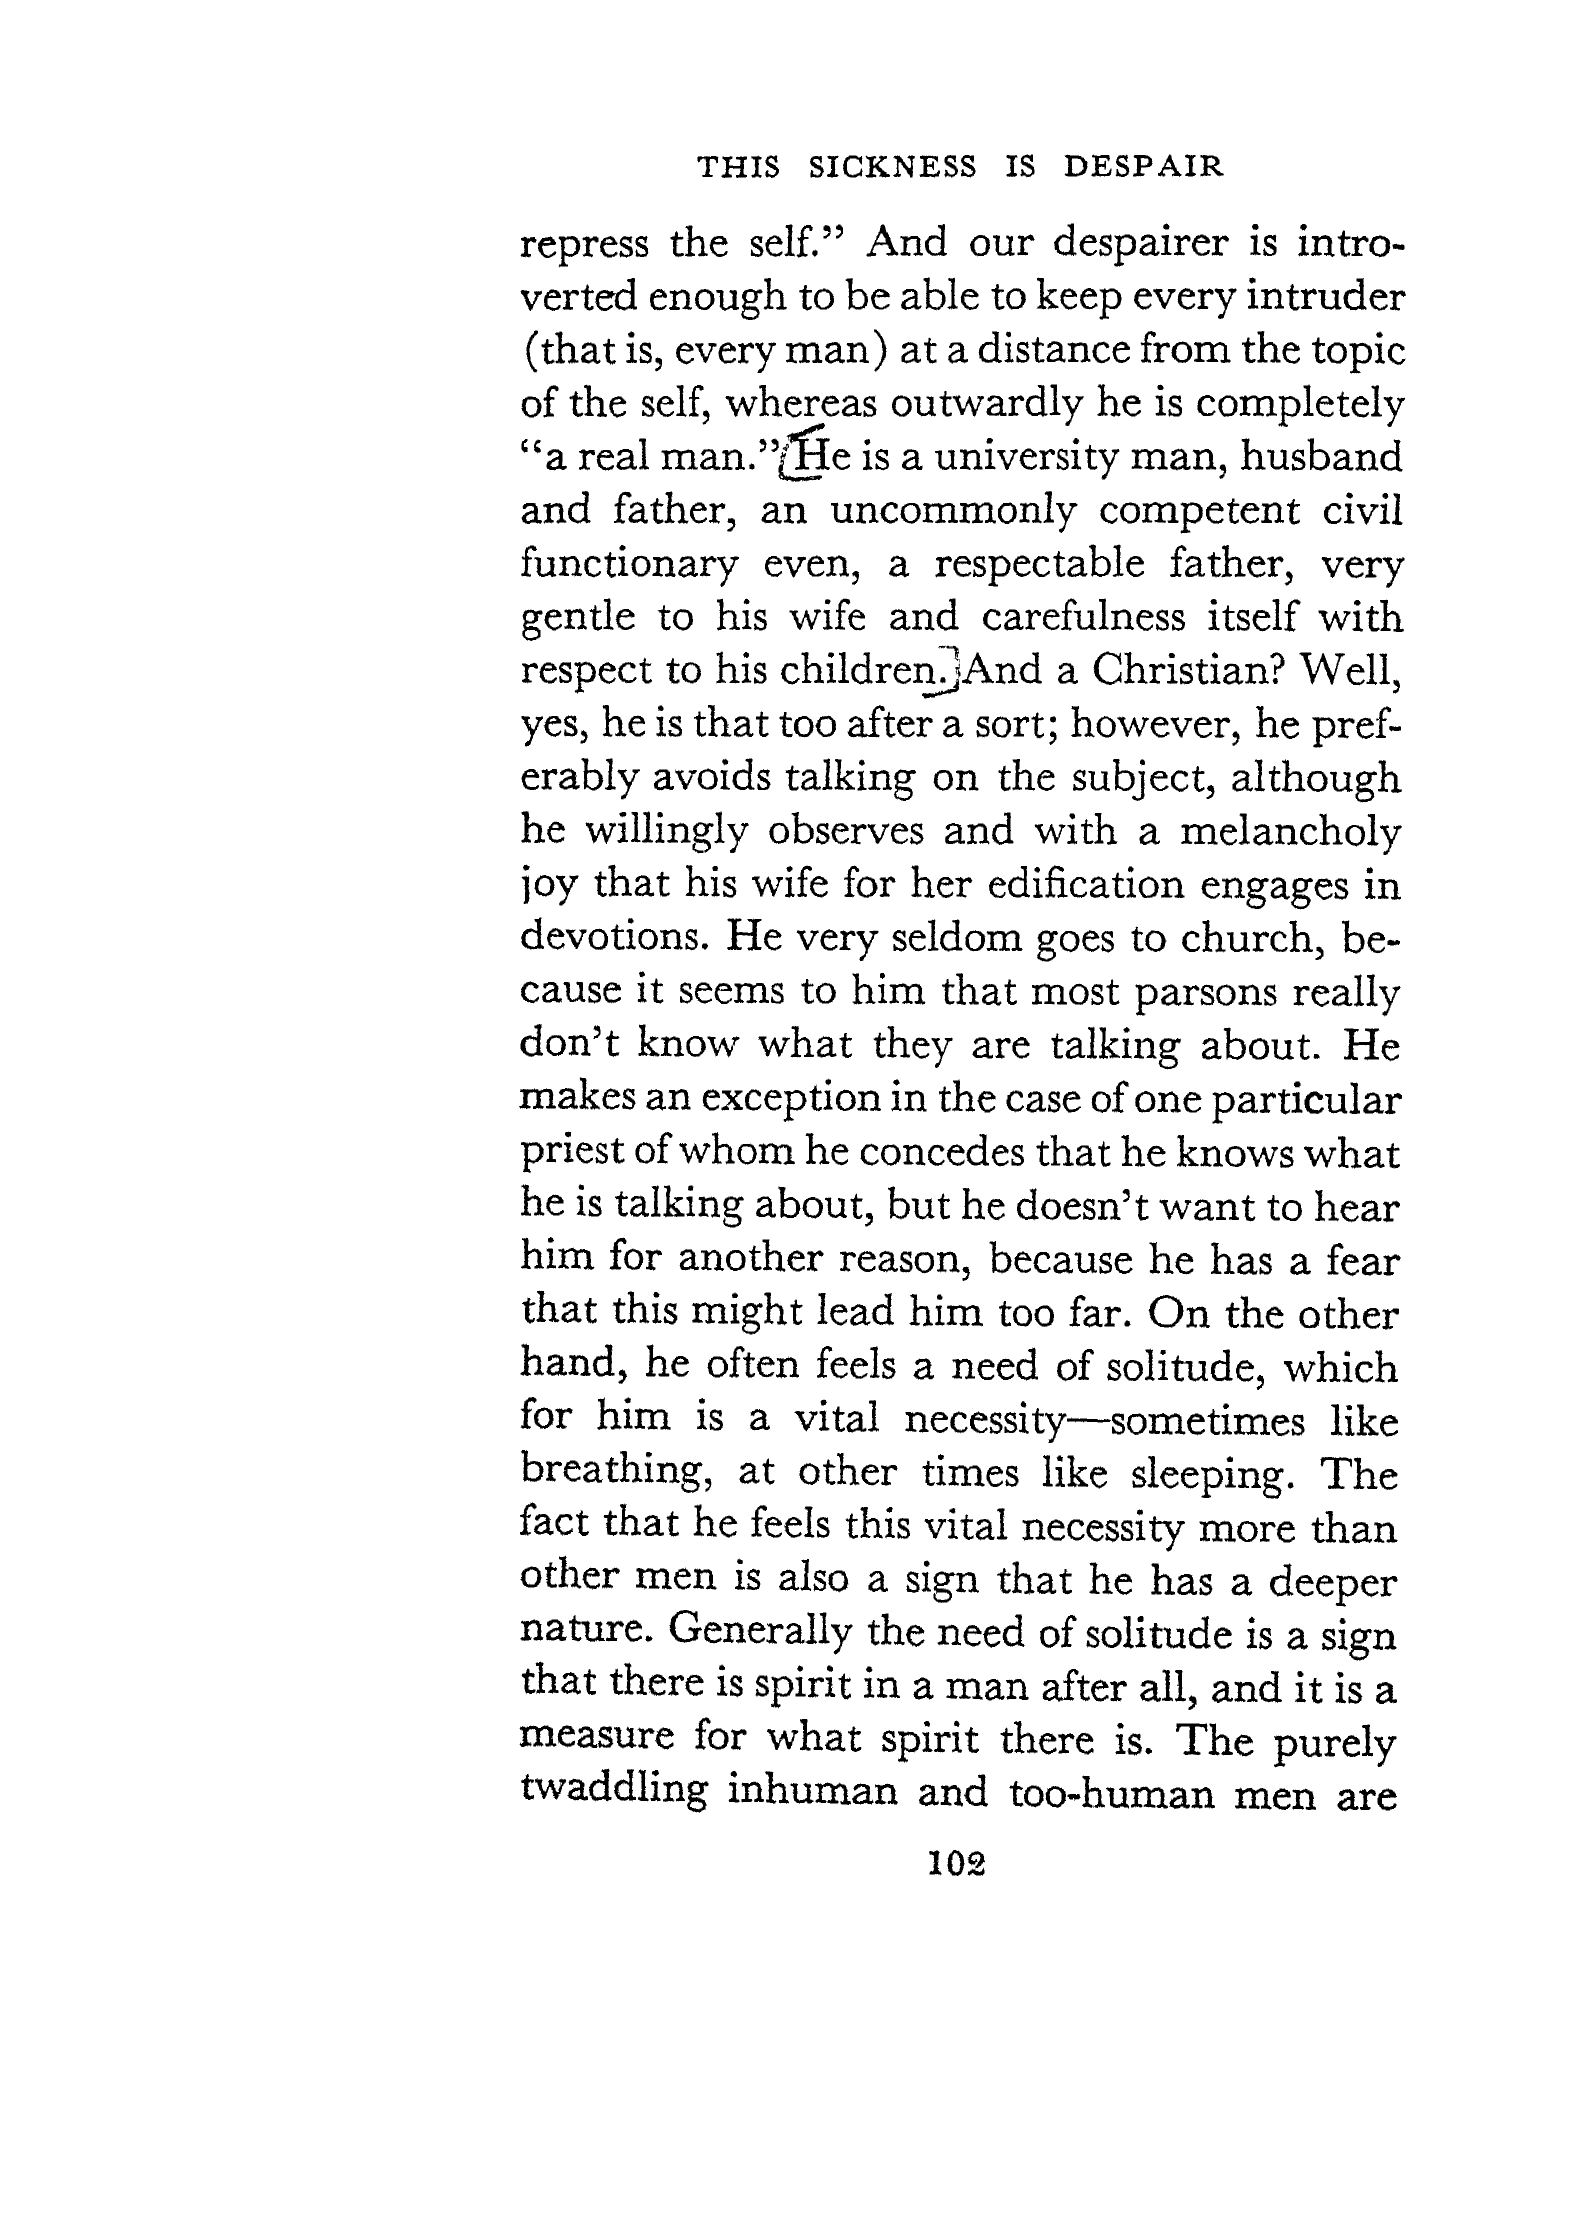 THIS SICKNESS IS DESPAIR
repress the self.” And our despairer is intro-
verted enough to be able to keep every intruder
(that is, every man) at a distance from the topic
of the self, whereas outwardly he is completely
“a real man.” [He is a university man, husband
and father, an uncommonly competent civil
functionary even, a respectable father, very
gentle to his wife and carefulness itself with
respect to his children.] And a Christian? Well,
yes, he is that too after a sort; however, he pref-
erably avoids talking on the subject, although
he willingly observes and with a melancholy
joy that his wife for her edification engages in
devotions. He very seldom goes to church, be-
cause it seems to him that most parsons really
don’t know what they are talking about. He
makes an exception in the case of one particular
priest of whom he concedes that he knows what
he is talking about, but he doesn’t want to hear
him for another reason, because he has a fear
that this might lead him too far. On the other
hand, he often feels a need of solitude, which
for him is a vital necessity—sometimes like
breathing, at other times like sleeping. The
fact that he feels this vital necessity more than
other men is also a sign that he has a deeper
nature. Generally the need of solitude is a sign
that there is spirit in a man after all, and it is a
measure for what spirit there is. The purely
twaddling inhuman and too-human men are
102